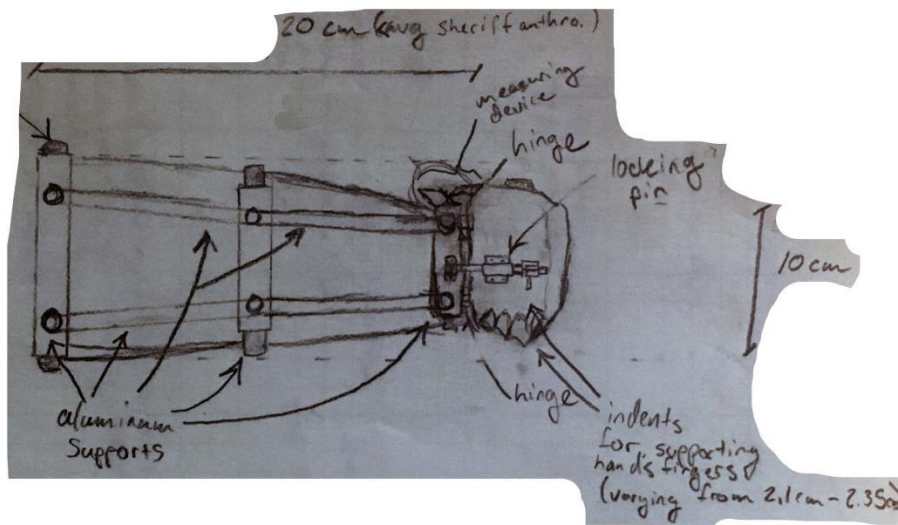 20 cm (avg sheriff anthro.)
measuring
device
hinge
locking
pin
10 cm
aluminum
supports
hinge
indents
for supporting
hand's fingers
(varying from 2.1cm - 2.35cm)